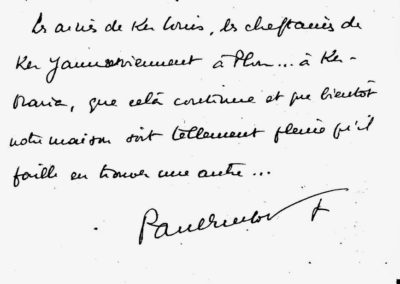 Les amies de Ker Louis, les cheftaines de
Ker Yann viennent à Plou... à Ker-
Maria, que celà continue et que bientôt
notre maison soit tellement pleine qu'il
faille en trouver une autre...